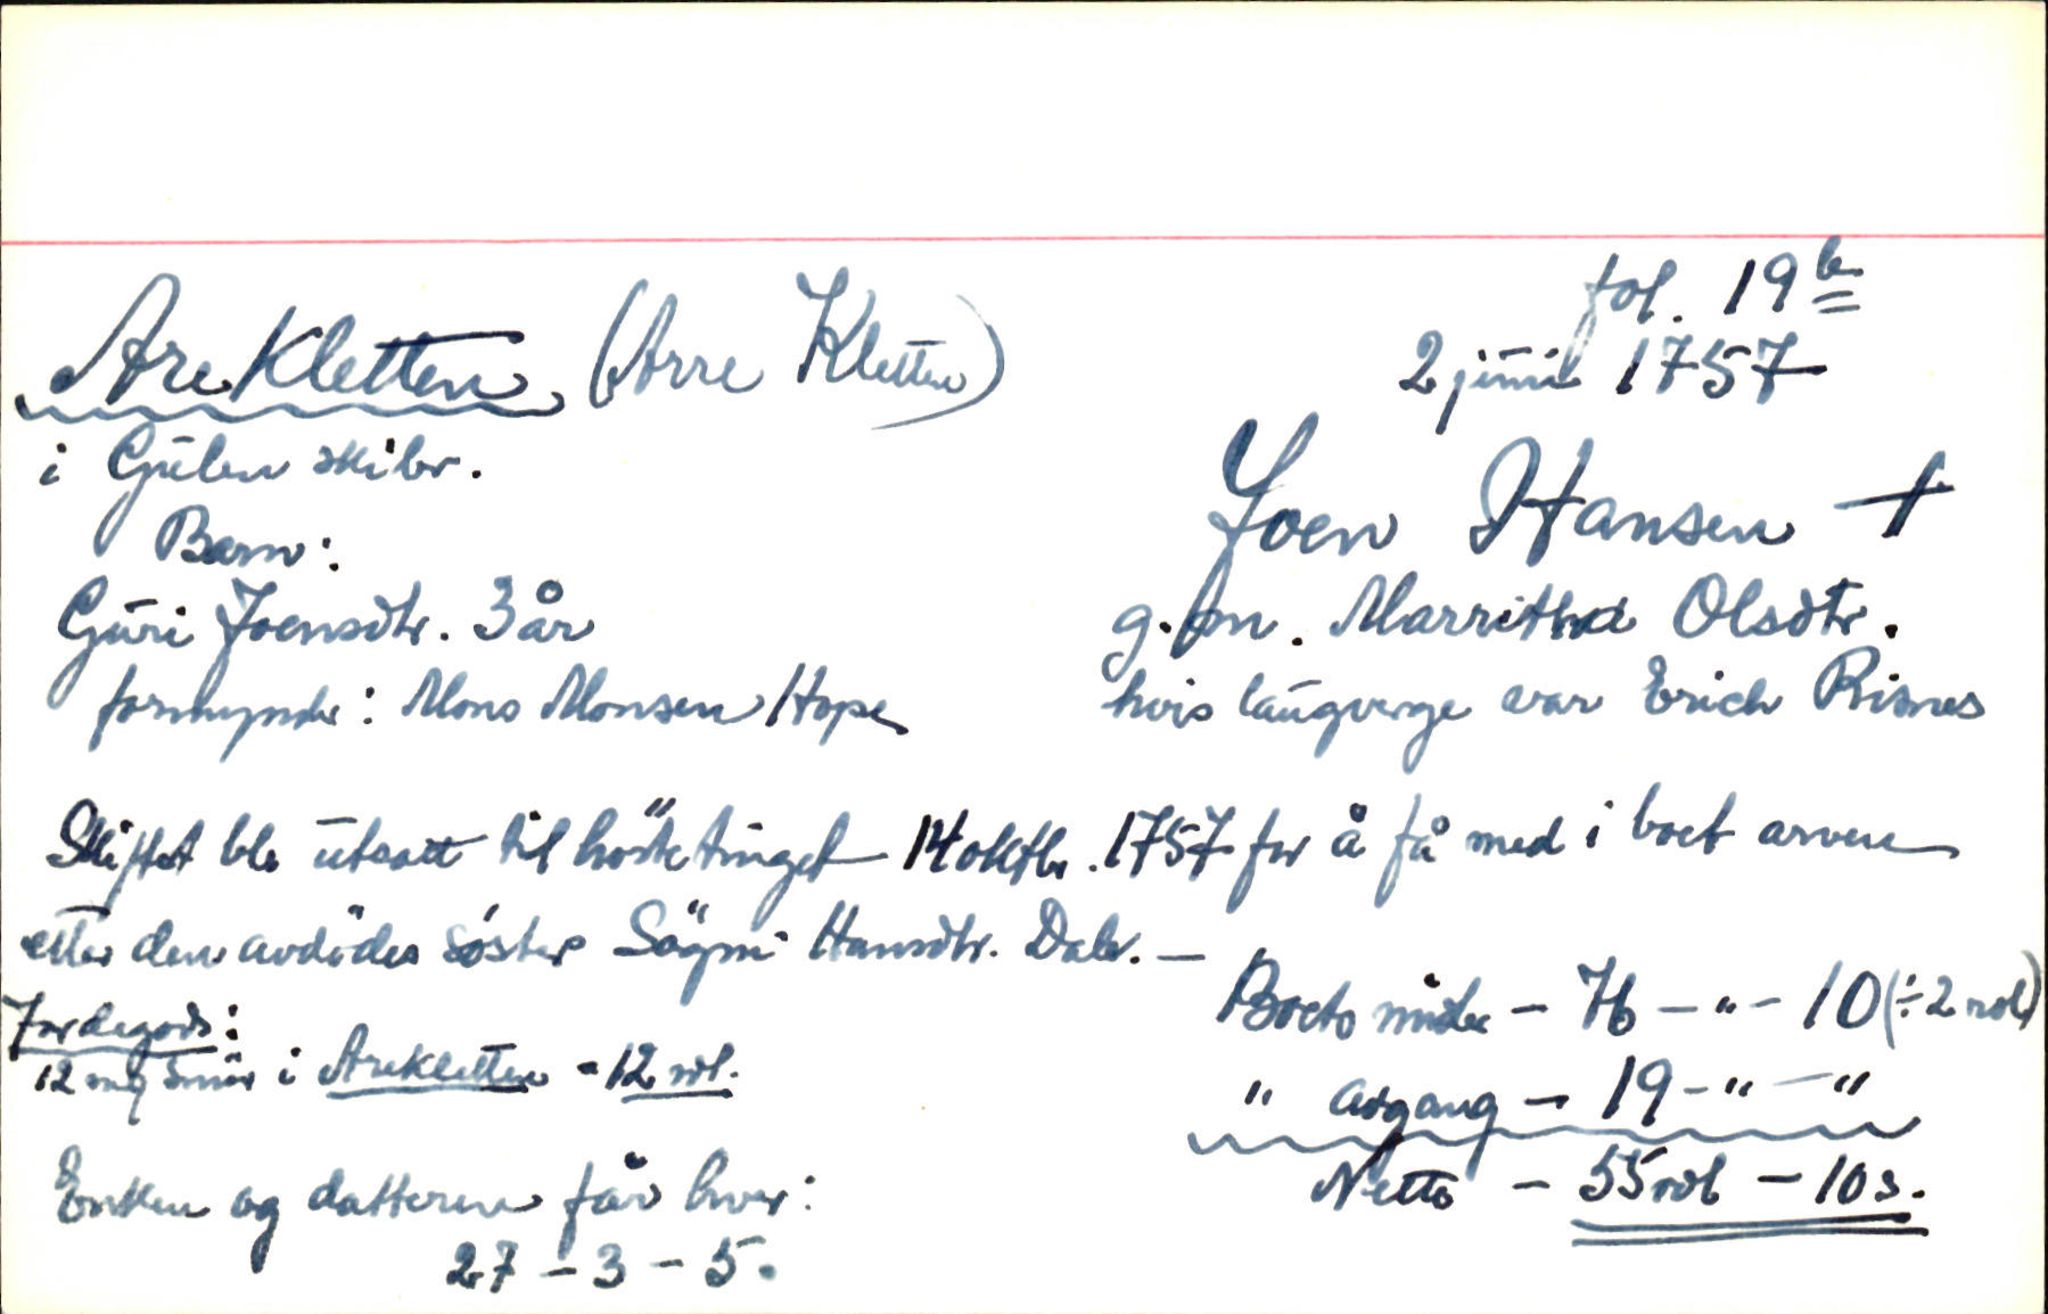 fol. 19 b
Arekletten (Arre Kletten) 2 juni 1757
i Gulen skibr.
Joen Hansen +
Barn:
Guri Joensdtr. 3 år
g. m. m. Marritha Olsdtr.
formynder: Mons Monsen Hope
hvis laugverge var Erich Risnes
Skiftet ble utsatt til høstetinget 14 oktbr. 1757 for å få med i boet arven
etter den avdødes søster Sögni Hansdtr. Dale. —
Jordegods:
12 mrk smör i Arekletten - 12 rdl.
Boets midler - 76 - " - 10 (÷ 2 rdl)
" avgang - 19 - " - "
Netto - 55 rdl - 10 s.
Enken og datteren får hver:
27 - 3 - 5.